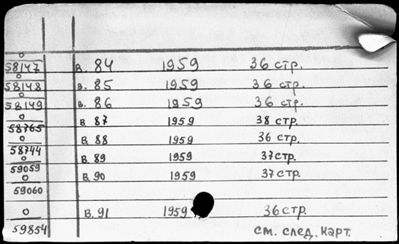 о
58147 в. 84 1959 36 стр.
о
58148 в. 85 1959 36 стр.
о
58149 в. 86 1959 36 стр.
о
58765 в 87 1959 38 стр.
о
58744 в 88 1959 36 стр.
о
59059 в. 89 1959 37 стр.
о
59060 в. 90 1959 37 стр.
о
59854 в. 91 1959 36 стр.
см. след. карт.